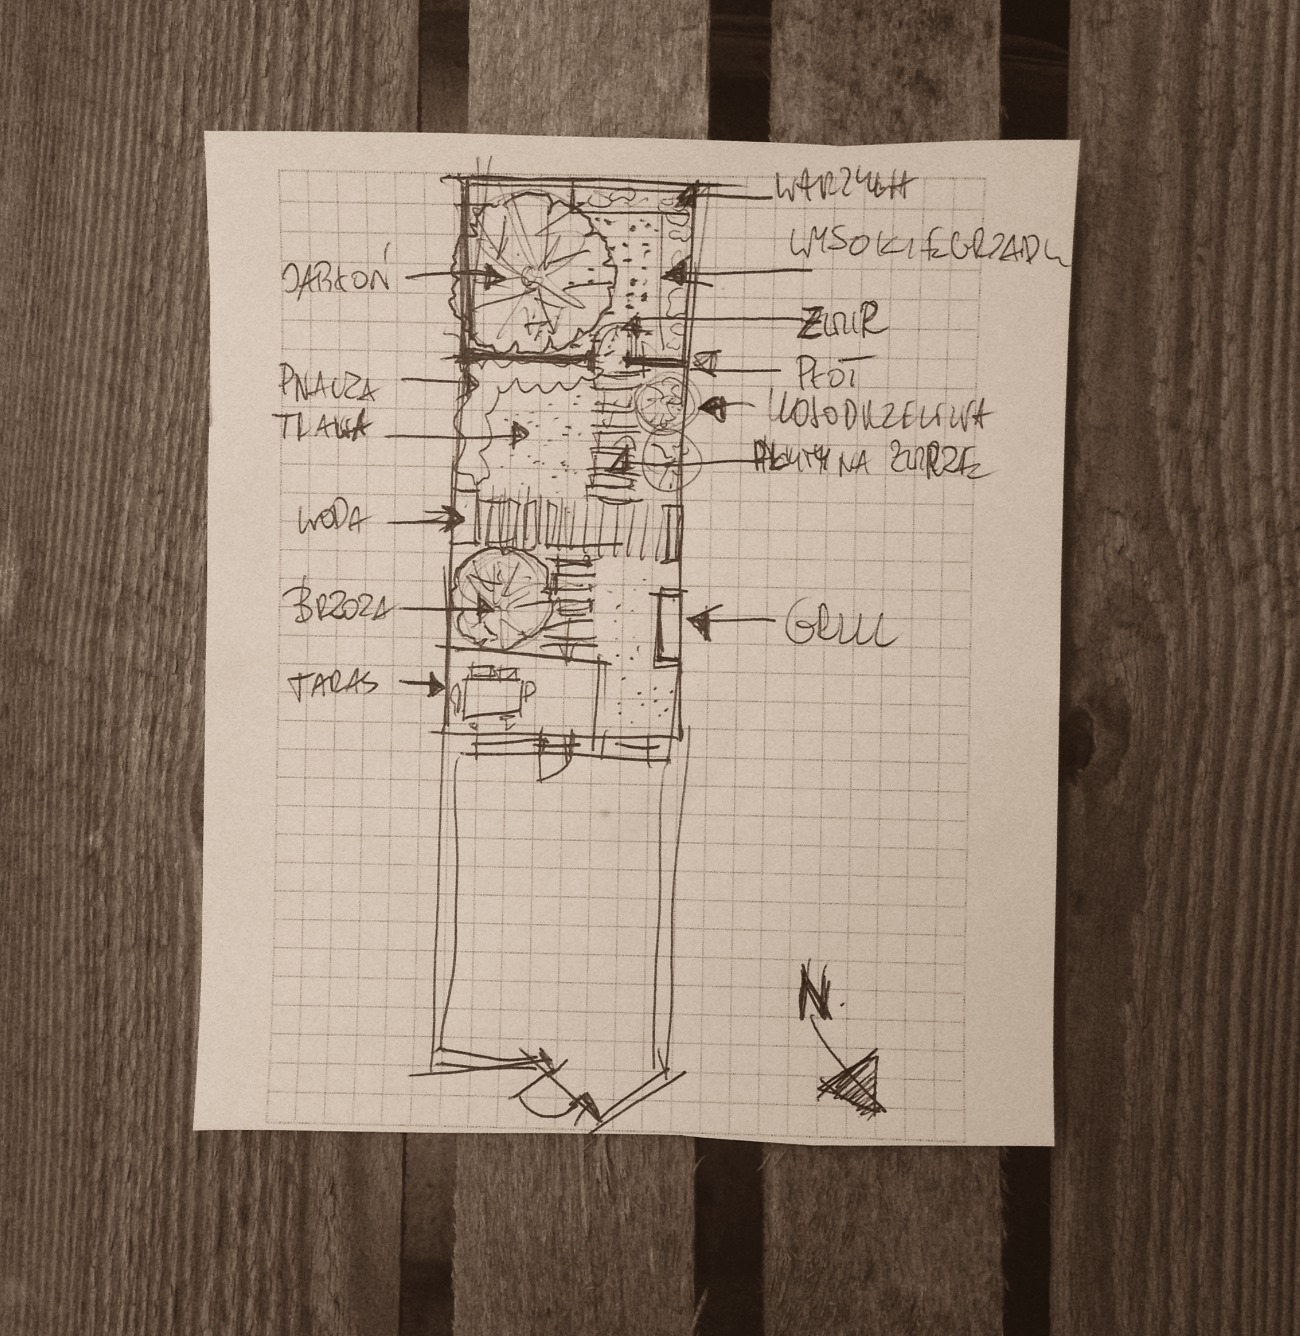 WARZYWA
WYSOKIE GRZĄDKI
JABŁOŃ
ŻWIR
PŁOT
PNĄCZA
KOSODRZEWINA
TRAWA
PŁYTY NA ŻWIRZE
WODA
BRZOZA
GRILL
TARAS
N.